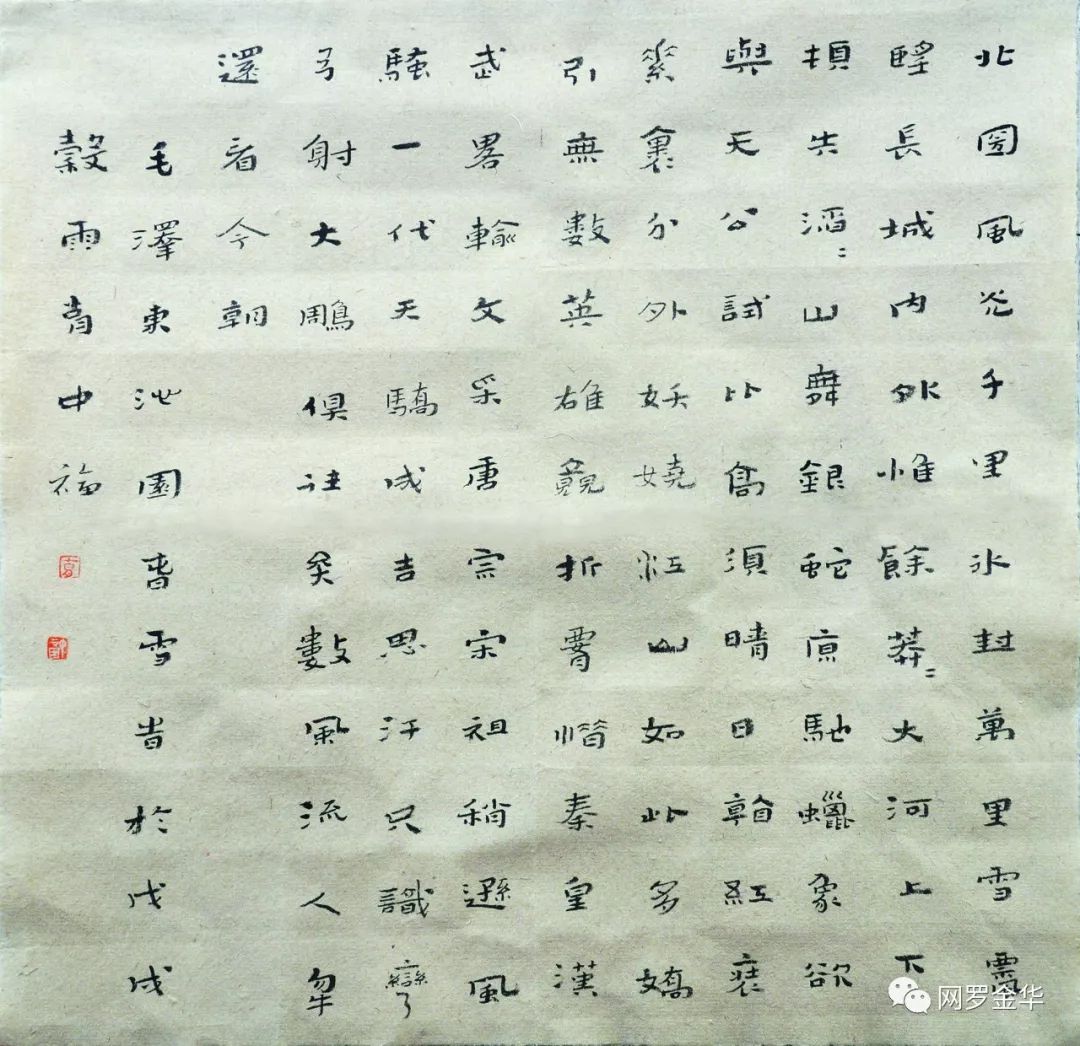 北圀風光千里氷封萬里雪飄
望長城內外惟餘莽〻大河上下
頓失滔〻山舞銀蛇原馳蠟象欲
與天公試比高須晴日看紅裝
素裹分外妖嬈江山如此多嬌
引無數英雄競折腰惜秦皇漢
武畧輸文采唐宗宋祖稍遜風
騷一代天驕成吉思汗只識彎
弓射大鵰俱往矣數風流人物
還看今朝
毛澤東沁園春雪書於戊戌
穀雨中福
网罗金华